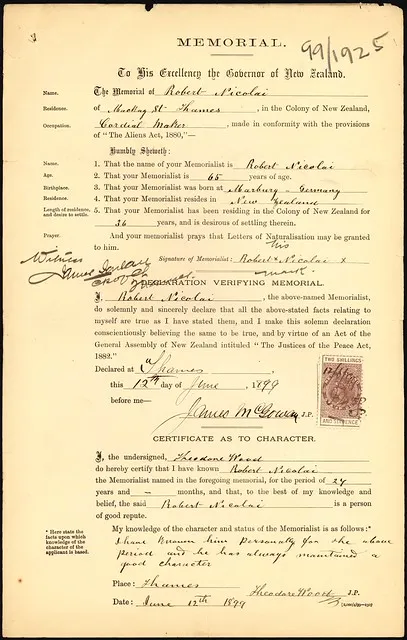 99/1925
MEMORIAL.
To His Excellency the Governor of New Zealand.
Name. The Memorial of Robert Nicolai
Residence. of Mackay St Thames, in the Colony of New Zealand,
Occupation. Cordial Maker, made in conformity with the provisions
of "The Aliens Act, 1880,"—
Humbly Sheweth:
Name. 1. That the name of your Memorialist is Robert Nicolai
Age. 2. That your Memorialist is 65 years of age.
Birthplace. 3. That your Memorialist was born at Marburg - Germany
Residence. 4. That your Memorialist resides in New Zealand
Length of residence, 5. That your Memorialist has been residing in the Colony of New Zealand for
and desire to settle. 36 years, and is desirous of settling therein.
Prayer. And your memorialist prays that Letters of Naturalisation may be granted
to him. his
Witness Signature of Memorialist: Robert x Nicolai x
James mark.
DECLARATION VERIFYING MEMORIAL.
I, Robert Nicolai, the above-named Memorialist,
do solemnly and sincerely declare that all the above-stated facts relating to
myself are true as I have stated them, and I make this solemn declaration
conscientiously believing the same to be true, and by virtue of an Act of the
General Assembly of New Zealand intituled "The Justices of the Peace Act,
1882."
Declared at Thames
this 12th day of June, 1899
before me—
James McGowan J.P.
TWO SHILLINGS
AND SIXPENCE
CERTIFICATE AS TO CHARACTER.
I, the undersigned, Theodore Wood
do hereby certify that I have known Robert Nicolai
the Memorialist named in the foregoing memorial, for the period of 24
years and – months, and that, to the best of my knowledge and
belief, the said Robert Nicolai is a person
of good repute.
* Here state the facts upon which knowledge of the character of the applicant is based.
My knowledge of the character and status of the Memorialist is as follows:*
I have known him personally for the above
period and he has always maintained a
good character
Place: Thames
Theodore Wood J.P.
Date: June 12th 1899